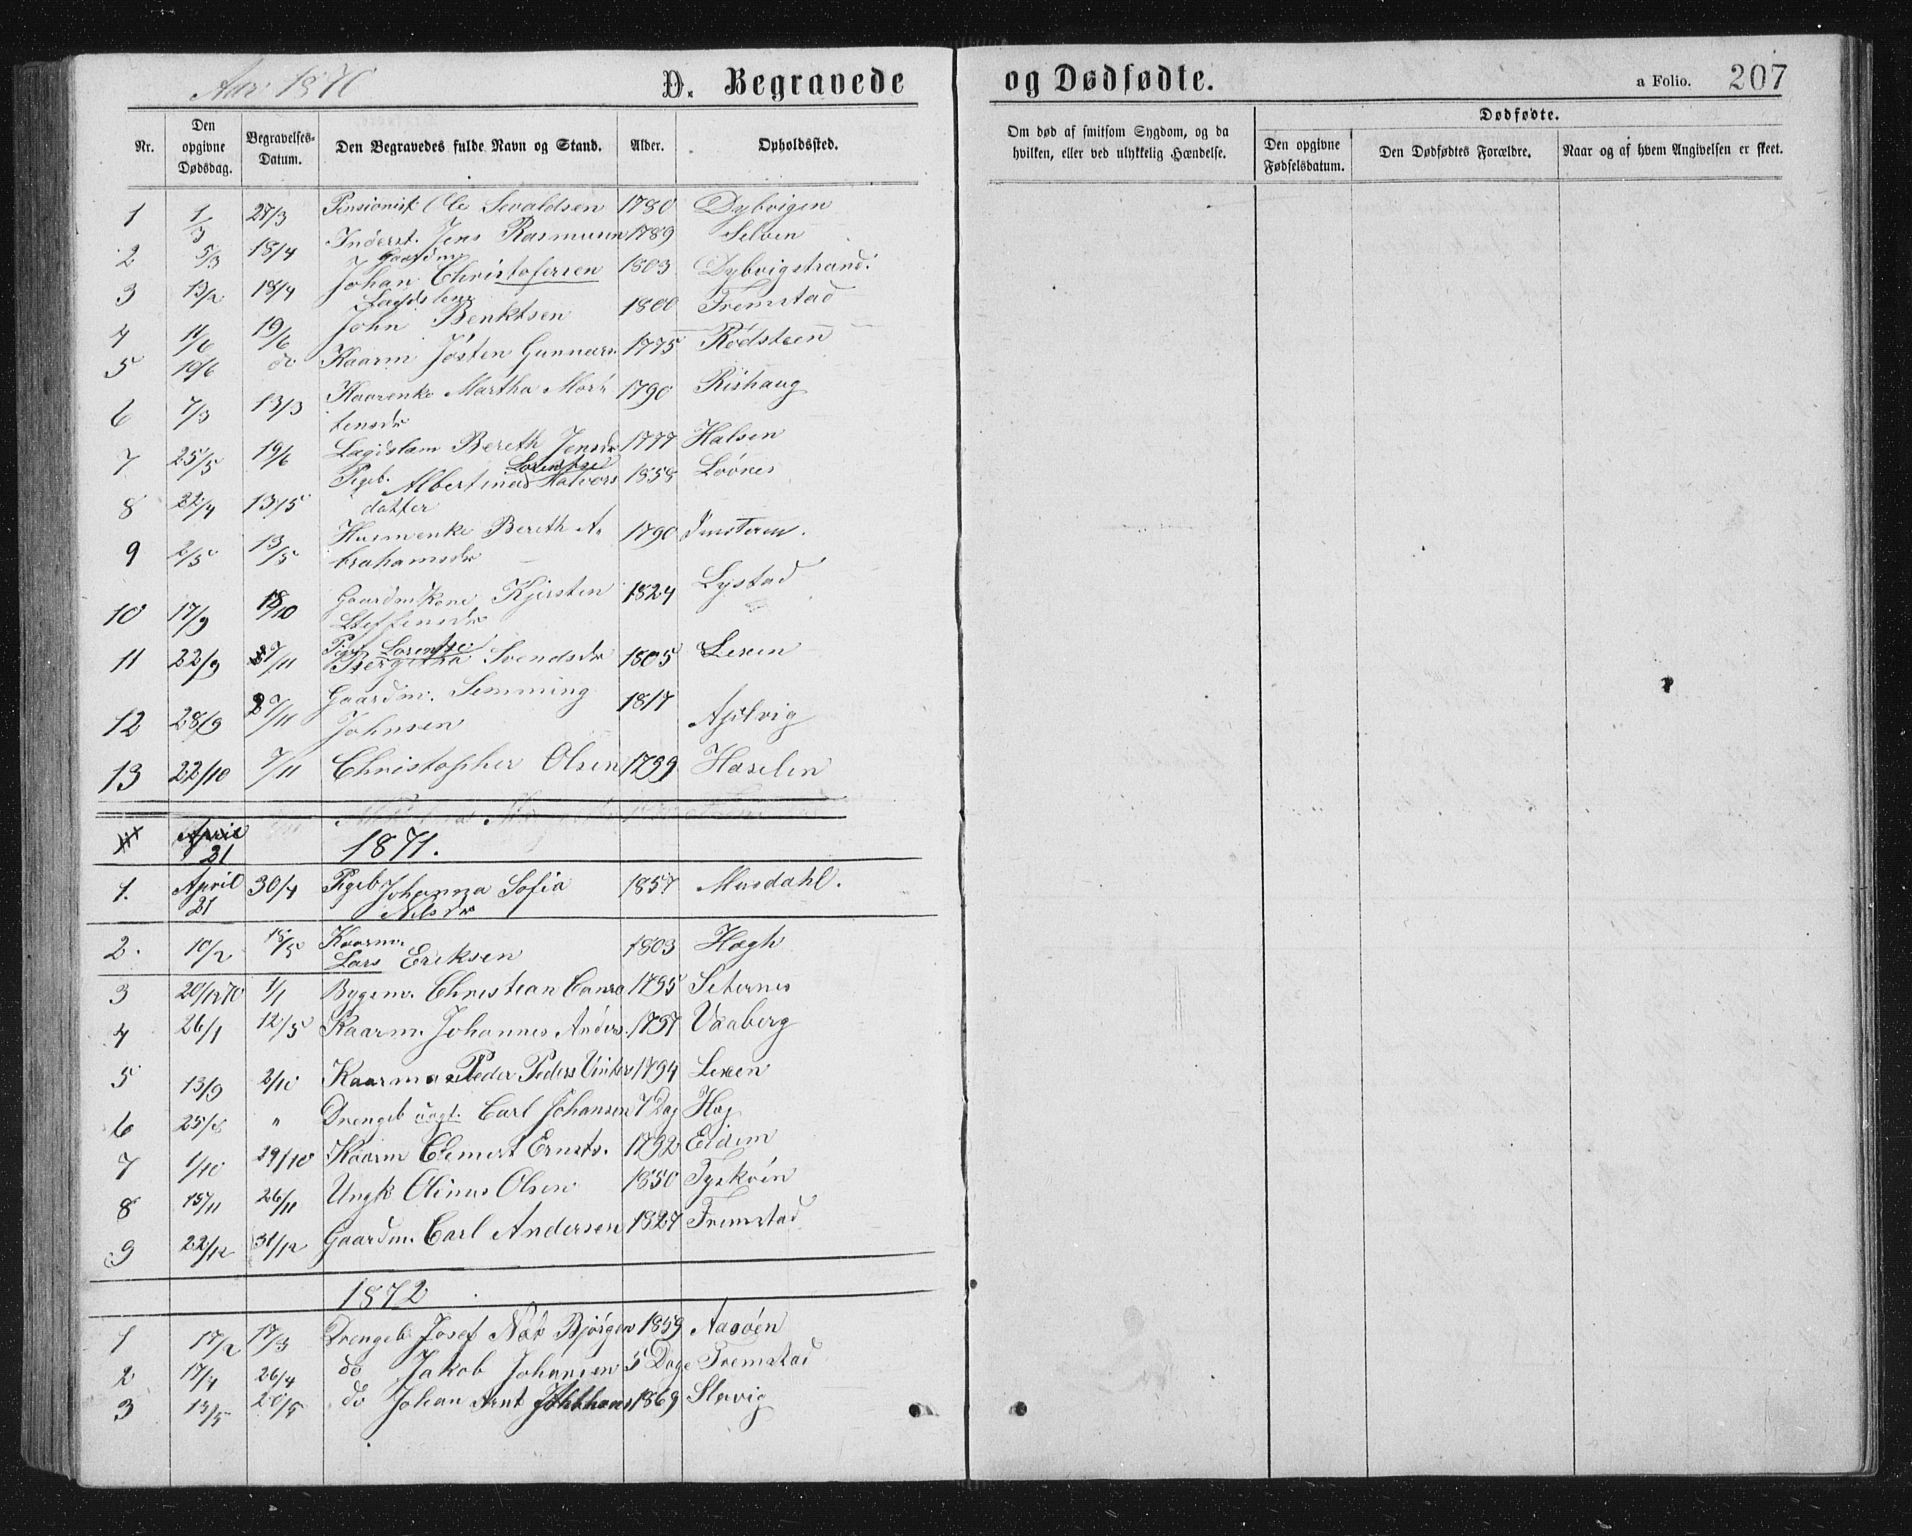 Aar 1870
D. Begravede og Dødfødte.
a Folio. 207
Nr.
Den opgivne Dødsdag.
Begravelses-Datum.
Den Begravedes fulde Navn og Stand.
Alder.
Opholdssted.
Om død af smitsom Sygdom, og da hvilken, eller ved ulykkelig Hændelse.
Dødfødte.
Den opgivne Fødselsdatum.
Den Dødfødtes Forældre.
Naar og af hvem Angivelsen er skeet.
1 1/3 27/3 Pensionist Ole Sevaldsen 1780 Dybvigen
2 5/3 18/4 Inderst. Jens Rasmusen 1789 Selven
3 13/2 18/4 Gaardm Johan Christofersen 1803 Dybvigstrand
4 11/6 19/6 Lægdslem John Benktsen 1800 Fremstad
5 10/6 do Kaarm Josten Gunnars 1775 Rødsteen
6 7/3 13/3 Kaarenke Martha Mor-
tensdr 1790 Rishaug
7 25/5 19/6 Lægdslem Bereth Jensdr 1777 Halsen
8 22/4 13/5 Pigeb. Albertine Lorentse Halvors
datter 1858 Loönes
9 2/5 13/5 Husmenke Bereth A-
brahamsdr 1790
10 17/9 18/10 Gaardm Kone Kjersten
Steffensdr 1824 Lystad
11 22/9 /11 Pige Lorentse
Bergitha Svendsdr 1805 Leren
12 28/9 27/11 Gaardm. Semming
Johnsen 1817 Aplvig
13 22/10 7/11 Christopher Olsen 1799 Haselen
April
21 1871.
1. April
21 30/4 Pigeb Johanna Sofia
Nilsdr 1857 Musdahl.
2. 10/2 15/5 Kaarm.
Lars Eriksen 1803 Hogh
3 20/12 70 1/1 Bygsm. Christian Conra 1795 Seternes
4 26/1 12/5 Kaarm. Johannes Anders. 1797 Vaaberg
5 13/9 2/10 Kaarman Peder Peders Vinter 1794 Leren
6 25/8 " Drengeb uægt. Carl Johansen 7 Dag Hog
7 1/10 29/10 Kaarm Clemert Ernsts. 1792 Eidem
8 15/11 26/11 Ungk Olinus Olsen 1850 Tyskøen
9 22/12 31/12 Gaardm. Carl Andersen 1827 Fremstad
1872
1 17/2 17/3 Drengeb Josef Bjørgen 1859 Aasøen
2 17/4 26/4 do Jakob Johansen 5 Dage Fremstad
3 13/5 20/5 do Johan Arnt 1869 Slavig